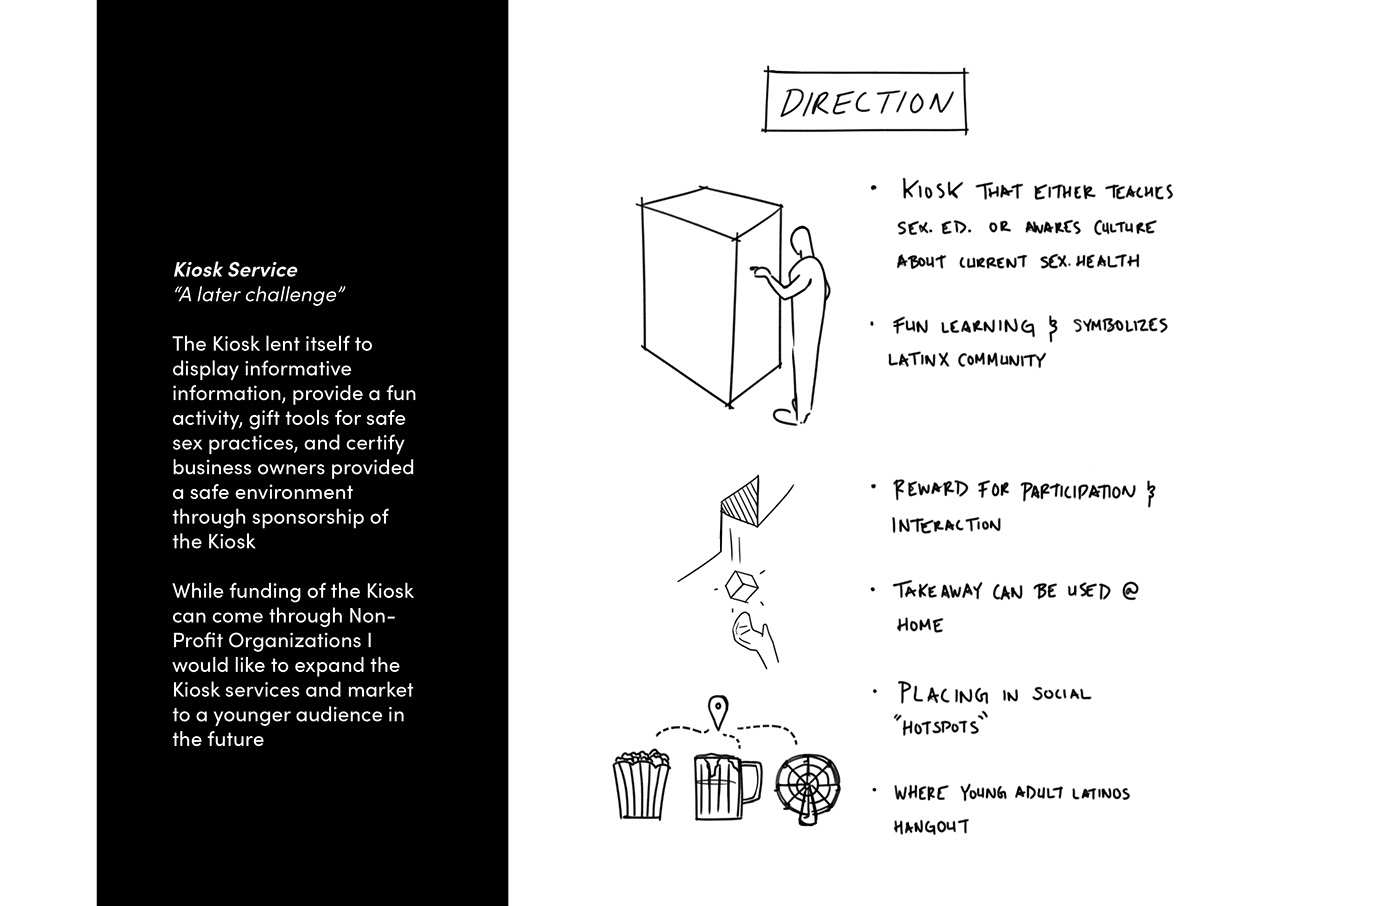 Kiosk Service
“A later challenge”
The Kiosk lent itself to
display informative
information, provide a fun
activity, gift tools for safe
sex practices, and certify
business owners provided
a safe environment
through sponsorship of
the Kiosk
While funding of the Kiosk
can come through Non-
Profit Organizations I
would like to expand the
Kiosk services and market
to a younger audience in
the future
DIRECTION
• KIOSK THAT EITHER TEACHES
SEX. ED. OR AWARES CULTURE
ABOUT CURRENT SEX. HEALTH
• FUN LEARNING & SYMBOLIZES
LATINX COMMUNITY
• REWARD FOR PARTICIPATION &
INTERACTION
• TAKEAWAY CAN BE USED @
HOME
• PLACING IN SOCIAL
"HOTSPOTS"
• WHERE YOUNG ADULT LATINOS
HANGOUT